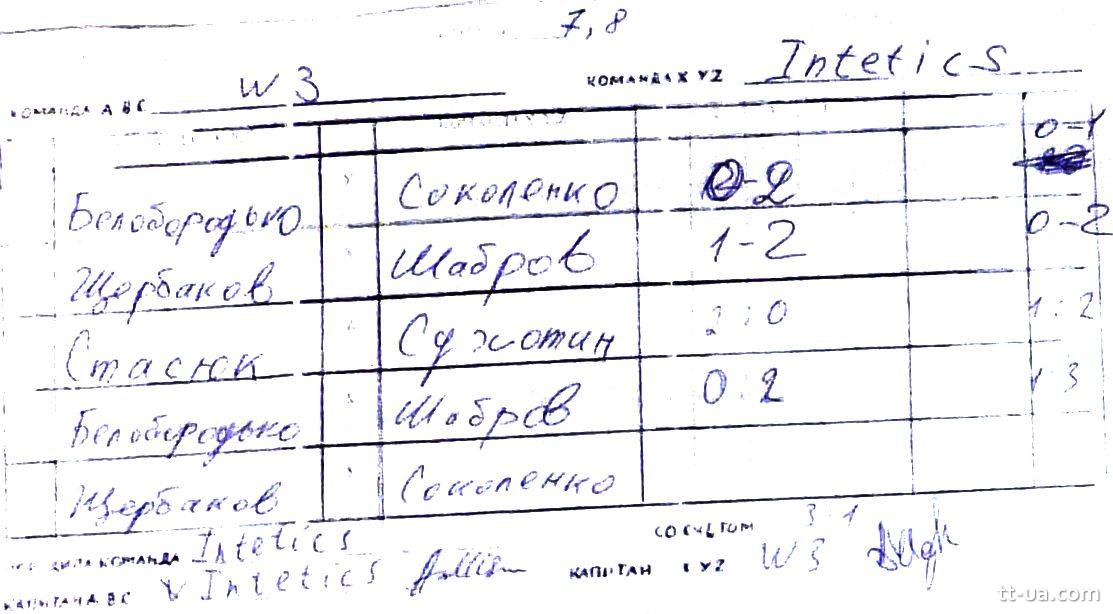 7, 8
КОМАНДА А В С W 3 КОМАНДА X Y Z Intetics
0-1
Белобородько Соколенко 0-2
Щербаков Шабров 1-2 0-2
Стасюк Сухотин 2:0 1:2
Белобородько Шабров 0:2 1:3
Щербаков Соколенко
КОМАНДА Intetics СО СЧЕТОМ 3-1
КАПИТАН А В С Intetics КАПИТАН X Y Z W 3
tt-ua.com